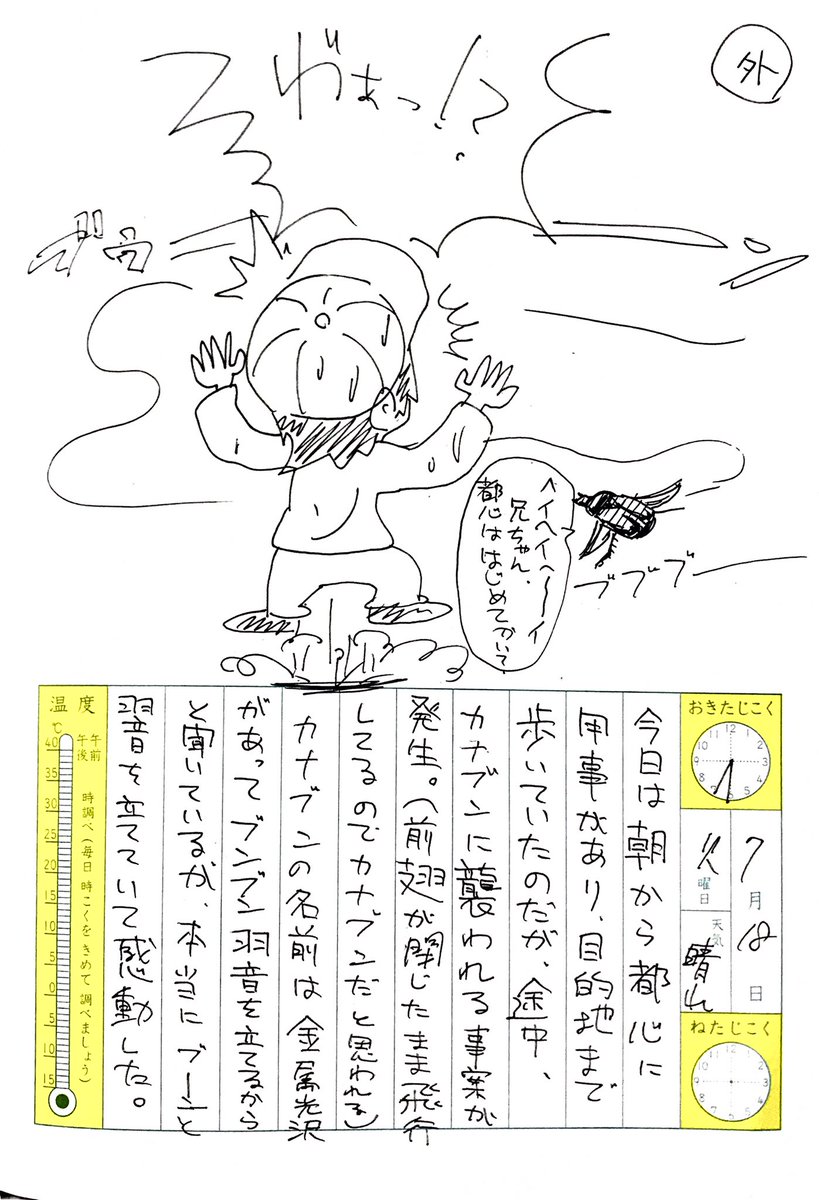 外
わぁっ!?
ヘイヘイヘ〜イ
兄ちゃん、
都心ははじめてかい?
ブブブー
おきたじこく
7月18日
火曜日
天気
晴れ
ねたじこく
今日は朝から都心に
用事があり、目的地まで
歩いていたのだが、途中、
カナブンに襲われる事案が
発生。(前翅が閉じたまま飛行
してるのでカナブンだと思われる)
カナブンの名前は金属光沢
があってブンブン羽音を立てるから
と聞いているが、本当にブーンと
羽音を立てていて感動した。
温度
℃
午前
午後
時調べ(毎日 時こくを きめて 調べましょう)
40
35
30
25
20
15
10
5
0
5
10
15